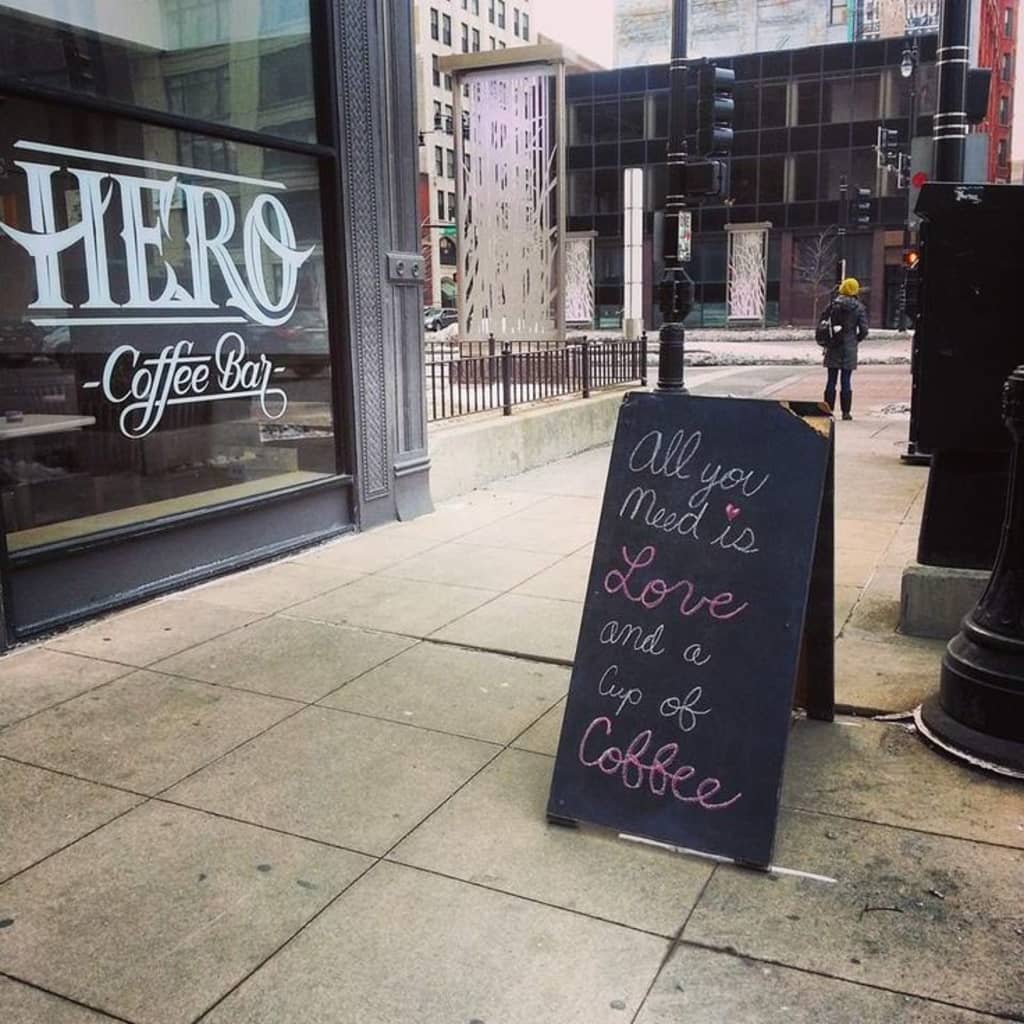 HERO
-Coffee Bar-
All you
need is
Love
and a
Cup of
Coffee